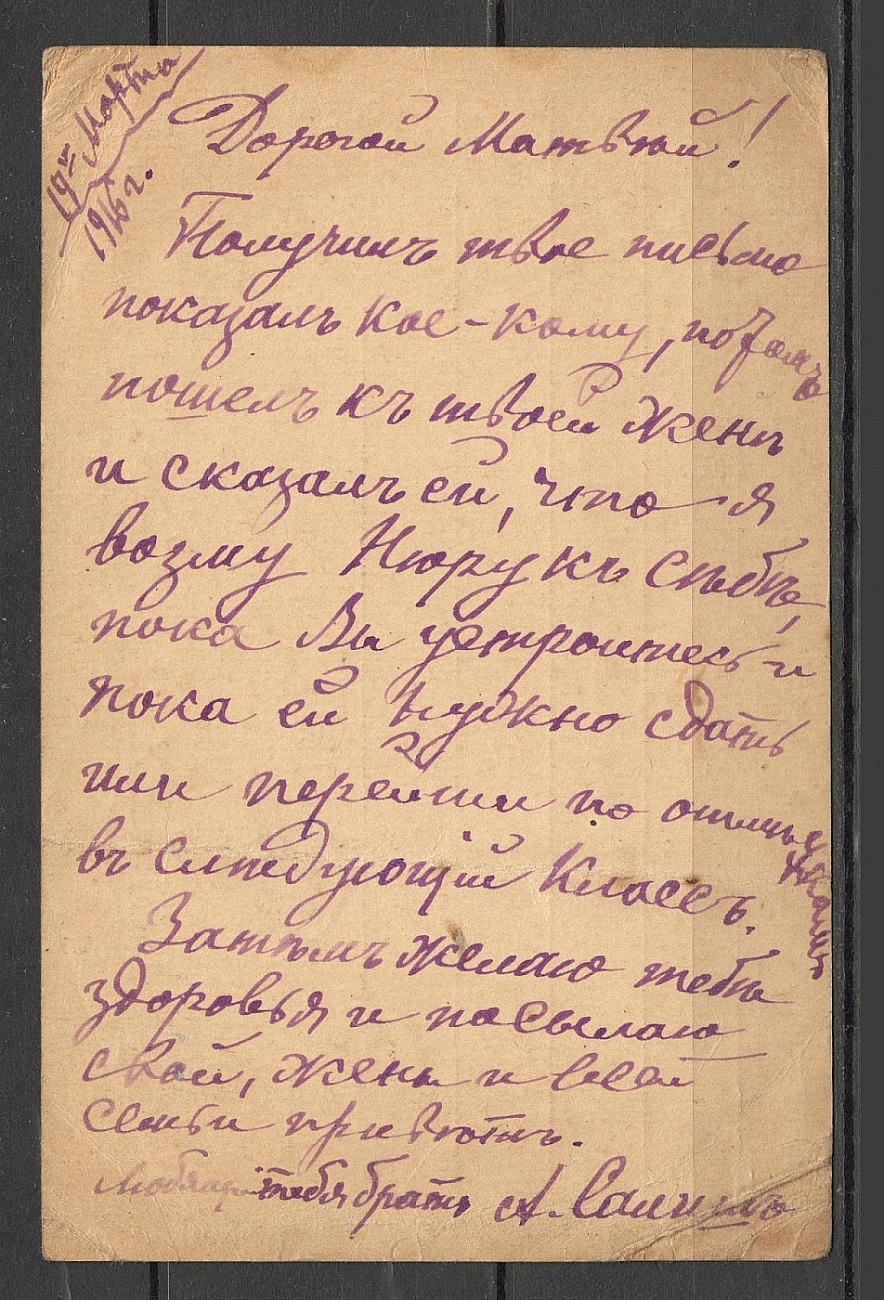 19го Марта
1916 г.
Дорогой Матвѣй!
Получилъ твое письмо
показалъ кое-кому, потомъ
пошелъ къ твоей женѣ
и сказалъ ей, что я
возму Нюру къ сѣбѣ,
пока Вы устроитесь и
пока ей нужно сдать
или перейти по отмѣткамъ
въ слѣдующій Классъ.
Затѣмъ желаю тебѣ
здоровья и посылаю
свой, жены и всей
семьи привѣтъ.
Любящій тебя братъ А.